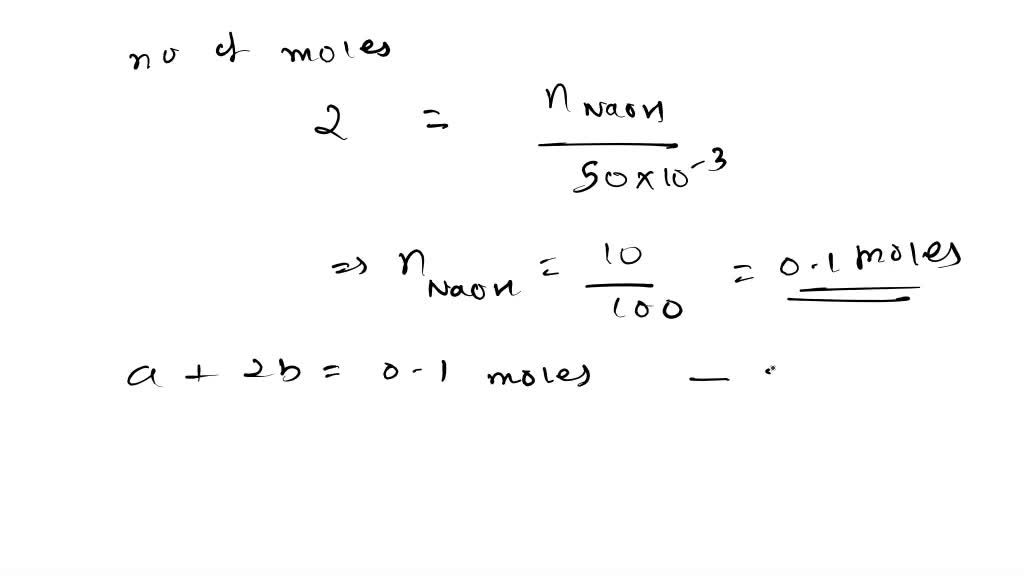 no of moles
2 = n NaOH / 50 x 10^-3
=> n NaOH = 10 / 100 = 0.1 moles
a + 2b = 0.1 moles —